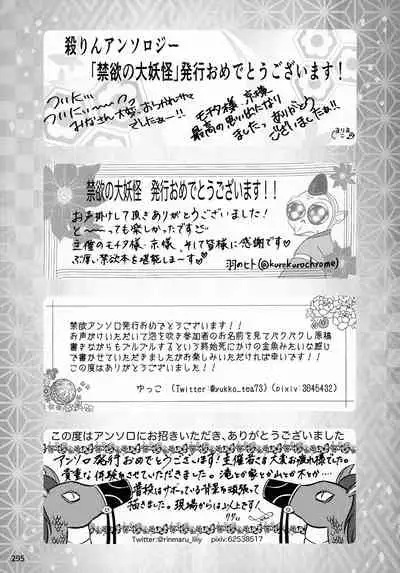 殺りんアンソロジー
「禁欲の大妖怪」発行おめでとうございます！
ついに…
ついに〜〜っっ
みなさん大変おつかれさまでしたぁー!!
モチタ様、京様
最高の思い出になりましたっ
ありがとうございましたぁ!!
禁欲の大妖怪 発行おめでとうございます！！
お声掛けして頂きありがとうございました！
と〜〜っても楽しかったです
主催のモチタ様、京様、そして皆様に感謝です♡
ぶ厚い禁欲本を堪能しまーす♡
羽のヒト(@kurekurochrome)
禁欲アンソロ発行おめでとうございます！！
お声がけいただいて泡を吹き参加者のお名前を見てパクパクし原稿
書きながらもアルアルするという終始死にかけの金魚みたいな感じ
で書かせていただきましたがお楽しみいただければ幸いです！！
この度はありがとうございました！
ゆっこ (Twitter @yukko_tea73) (pixiv 3645432)
この度はアンソロにお招きいただき、ありがとうございました
アンソロ発行おめでとうございます！主催者さま大変お疲れ様でした。
貴重な体験させていただきました。滝とか家とか山とか木とか…
普段はサボっている背景を頑張って
描きました。現場からは以上です！
Twitter:@rinmaru_liliy pixiv:62538517
295